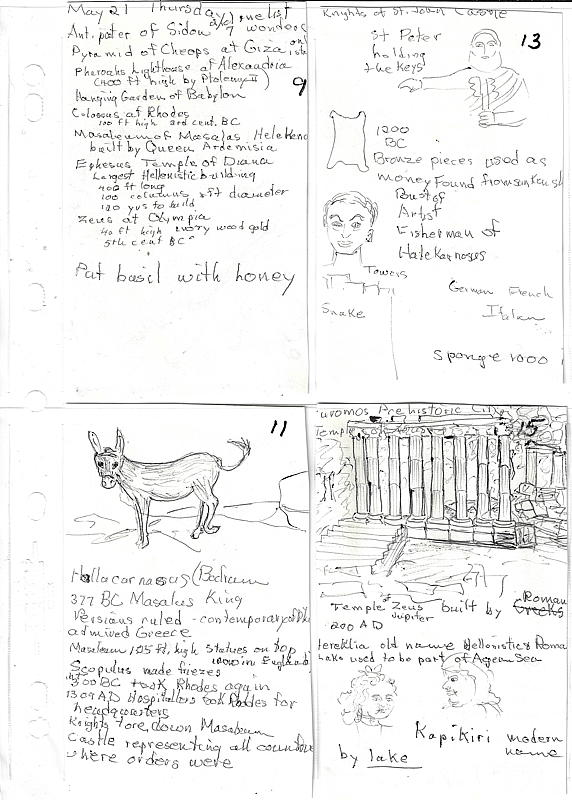 May 21 Thursday
Antipater of Sidon 7 wonders
Pyramid of Cheops at Giza
Pheroahs Lighthouse of Alexandria
(400 ft high by Ptolemy II)
9
Hanging Garden of Babylon
Colossus at Rhodes
100 ft high 3rd cent. BC
Masaleum of Masalas
built by Queen Ardemisia
Ephesus Temple of Diana
Largest Hellenistic building
400 ft long
100 columns ft diameter
120 yrs to build
Zeus at Olympia
40 ft high ivory wood gold
5th cent BC
Put basil with honey
Knights of St. John Castle
13
St Peter
holding
the keys
1200
BC
Bronze pieces used as
money Found from sunken sh
Bust of
Artist
Fisherman of
Halekarnasses
Towers
Snake
German French
Italian
Sponge 1000
11
Hallacarnasus (Bodrum
377 BC Masalus King
Persians ruled - contemporary of the
admired Greece
Masaleum 105 ft, high statues on top
Scopulus made friezes
now in England
300 BC took Rhodes again
1309 AD Hospitallers took Rhodes for
headquarters
Knights tore down Masaleum
Castle representing all countries
where orders were
Euromos Prehistoric City
Temple of Zeus
15
Temple of Zeus built by Roman
Jupiter
Greeks
200 AD
Hereklia old name Hellenistic & Roma
Lake used to be part of Agean Sea
Kapikiri modern
name
by lake